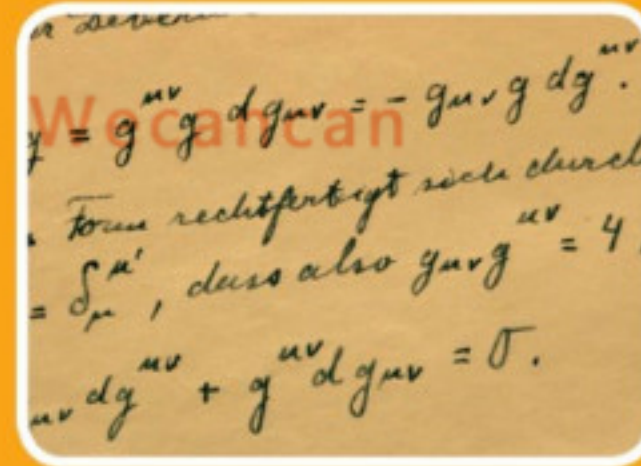 g = g^{μν} g dg_{μν} = - g_{μν} g dg^{μν}.
Wecancan
Form rechtfertigt sich durch
= δ_μ^{μ'}, dass also g_{μν} g^{μν} = 4
_{μν} dg^{μν} + g^{μν} d g_{μν} = 0.